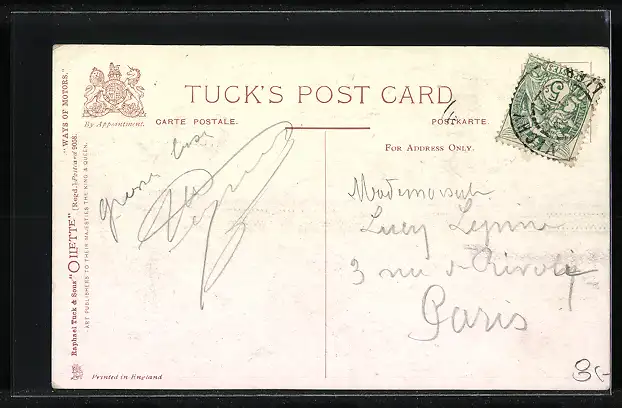 TUCK'S POST CARD
By Appointment.
CARTE POSTALE.
POSTKARTE.
FOR ADDRESS ONLY.
Raphael Tuck & Sons' "OILETTE" [Regd.] Postcard 9058.
"WAYS OF MOTORS."
ART PUBLISHERS TO THEIR MAJESTIES THE KING & QUEEN.
Mademoiselle
Lucy Lynne
3 rue de Rivoli
Paris
8,-
Printed in England